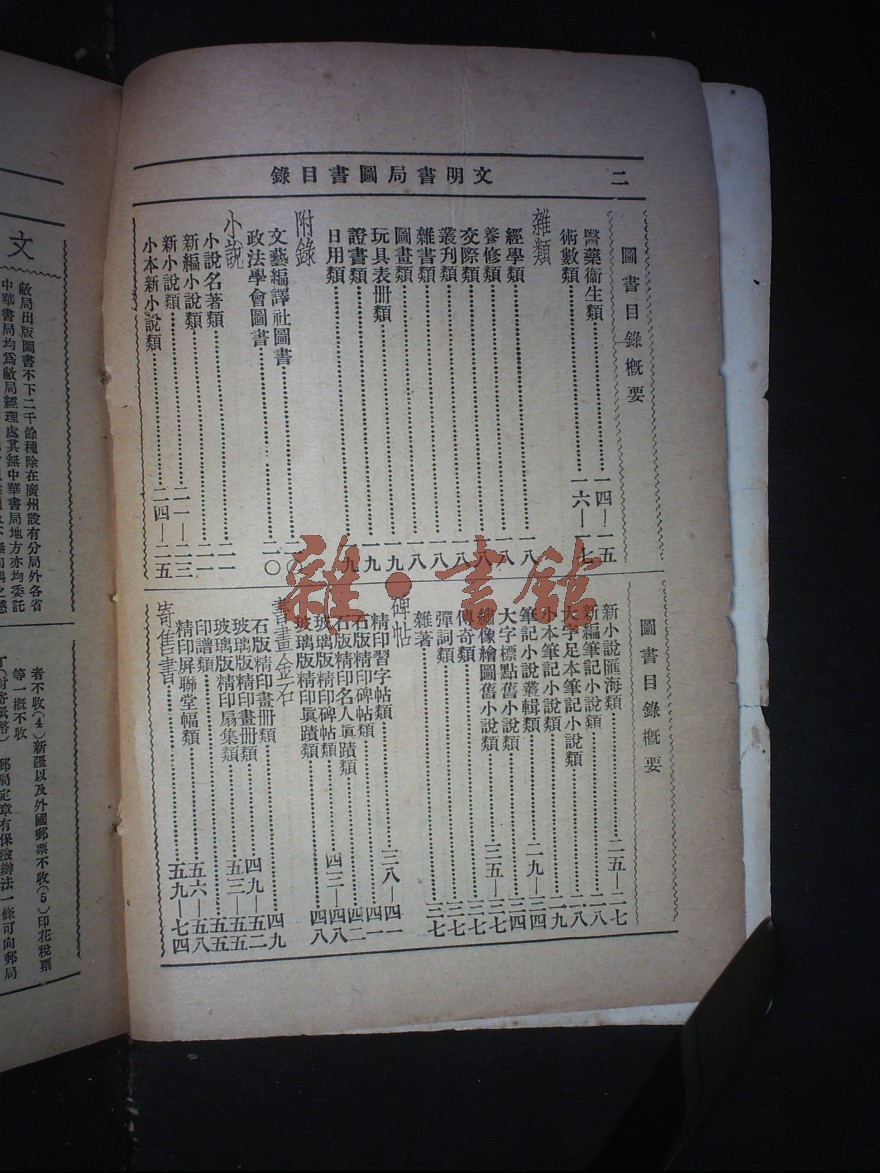 二
文明書局圖書目錄
圖書目錄槪要
醫藥衞生類 一四—一五
術數類 一六—一七
雜類
經學類 一八
養修類 一八
交際類 一八
叢刊類 一八
雜書類 一八
圖畫類 一九
玩具表册類 一九
證書類 一九
日用類
附錄
文藝編譯社圖書 二〇
政法學會圖書 二〇
小說
小說名著類 二一
新編小說類 二一
新小說類 二一—二三
小本新小說類 二四—二五
圖書目錄槪要
新小說匯海類 二五—二七
新編筆記小說類 二八
大字足本筆記小說類 二八
小本筆記小說類 二九
筆記小說叢輯類 二九—三四
大字標點舊小說類 三四
繡像繪圖舊小說類 三五—三七
傳奇類 三七
彈詞類 三七
雜著 三七
碑帖
精印習字帖類 三八—四一
石版精印碑帖類 四一
石版精印名人眞蹟類 四二
玻璃版精印碑帖類 四三—四八
玻璃版精印眞蹟類 四八
書畫金石
石版精印畫册類 四九
玻璃版精印畫册類 四九—五二
玻璃版精印扇集類 五三—五五
印譜類 五五
精印屏聯堂幅類 五六—五八
寄售書 五九—七四
雜·書館
文
敝局出版圖書不下二千餘種除在廣州設有分局外各省
中華書局均爲敝局經理處其無中華書局地方亦均委託
者不收(4)新疆以及外國郵票不收(5)印花稅票
等一槪不收
郵局定章有保險辦法一條可向郵局